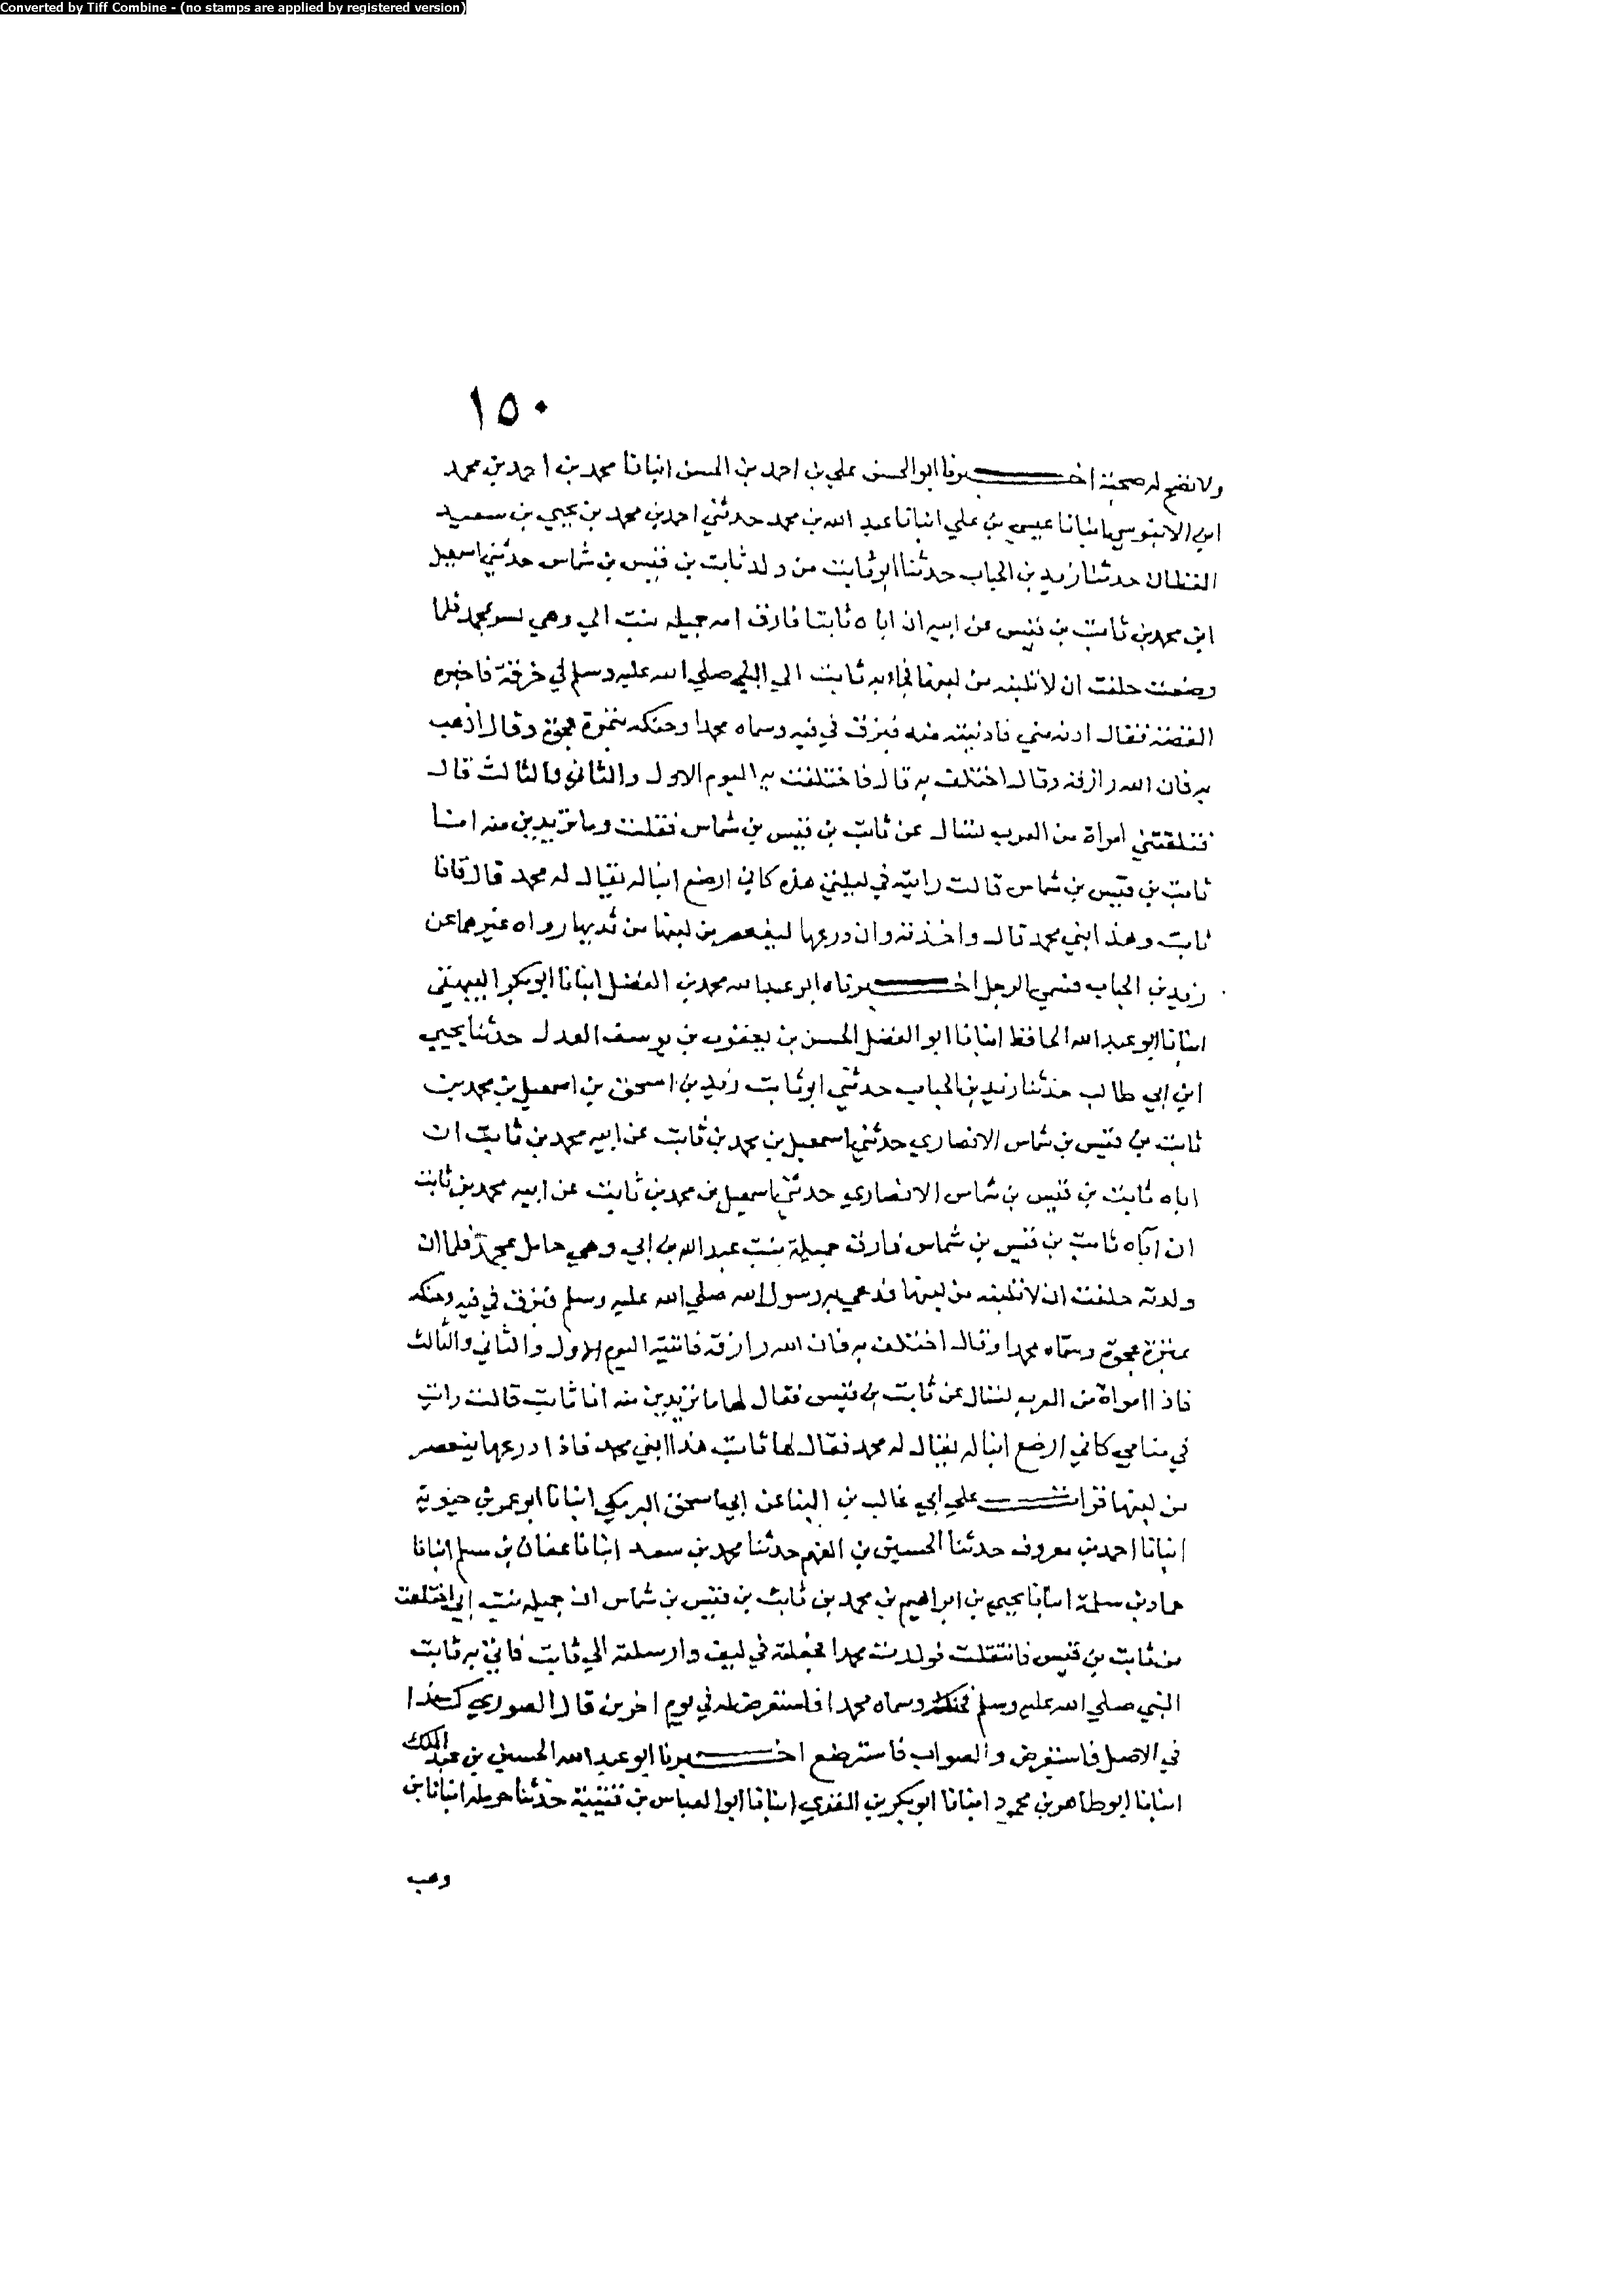 Converted by Tiff Combine - (no stamps are applied by registered version)
١٥٠
ولا تصح له صحبة اخبرنا ابو الحسن علي بن احمد بن الحسن انبانا محمد بن احمد بن محمد
ابن الابنوسي انبانا عيسي بن علي انبانا عبد الله بن محمد حدثني احمد بن محمد بن يحيي بن سعيد
القطان حدثنا زيد بن الحباب حدثنا ابو ثابت من ولد ثابت بن قيس بن شماس حدثني اسمعيل
ابن محمد بن ثابت بن قيس عن ابيه ان اباه ثابتا فارق امه جميله بنت ابي وهي نسو بمحمد فلما
وضعت حلفت ان لا تلبنه من لبنها فجاء به ثابت الي النبي صلي الله عليه وسلم في خرقة فاخبره
القصة فقال ادنه مني فادنيته منه فبزق في فيه وسماه محمدا وحنكه بتمرة عجوة وقال اذهب
به فان الله رازقه وقال اختلف به قال فاختلفت به اليوم الاول والثاني والثالث قال
فتلقتني امراة من العرب تسال عن ثابت بن قيس بن شماس فقلت وما تريدين منه انا
ثابت بن قيس بن شماس قالت رايته في ليلتي هذه كاني ارضع ابنا له يقال له محمد قال فانا
ثابت وهذا ابني محمد قال واخذته وان درعها ليعصر من لبنها من ثديها رواه غيرهما عن
زيد بن الحباب فسمي الرجل اخبرناه ابو عبد الله محمد بن الفضل انبانا ابو بكر البيهقي
انبانا ابو عبد الله الحافظ انبانا ابو الفضل الحسن بن يعقوب بن يوسف العدل حدثنا يحيي
ابن ابي طالب حدثنا زيد بن الحباب حدثني ابو ثابت زيد بن اسحق بن اسمعيل بن محمد بن
ثابت بن قيس بن شماس الانصاري حدثني اسمعيل بن محمد بن ثابت عن ابيه محمد بن ثابت ان
اباه ثابت بن قيس بن شماس الانصاري حدثني اسمعيل بن محمد بن ثابت عن ابيه محمد بن ثابت
ان اباه ثابت بن قيس بن شماس فارق جميلة بنت عبد الله بن ابي وهي حامل بمحمد فلما ان
ولدته حلفت ان لا تلبنه من لبنها فدعي به رسول الله صلي الله عليه وسلم فبزق في فيه وحنكه
بتمرة عجوة وسماه محمدا وقال اختلف به فان الله رازقه فاتيته اليوم الاول والثاني والثالث
فاذا امراة من العرب تسال عن ثابت بن قيس فقال لها ما تريدين منه انا ثابت قالت رايت
في منامي كاني ارضع ابنا له يقال له محمد فقال لها ثابت هذا ابني محمد فاذا درعها يتعصر
من لبنها قرات علي ابي غالب بن البنا عن ابي اسحق البرمكي انبانا ابو عمر بن حيوية
انبانا احمد بن معروف حدثنا الحسين بن الفهم حدثنا محمد بن سعد انبانا عفان بن مسلم انبانا
حماد بن سلمة انبانا يحيي بن ابراهيم بن محمد بن ثابت بن قيس بن شماس ان جميله بنت ابي اختلعت
من ثابت بن قيس فانتقلت فولدت محمدا فجعلته في ليف وارسلته الي ثابت فاتي به ثابت
النبي صلي الله عليه وسلم فحنكه وسماه محمدا فاستعرض له في يوم اخر بن قال الصوري كذا
في الاصل فاستعرض والصواب فاسترضع اخبرنا ابو عبد الله الحسين بن عبد الملك
انبانا ابو طاهر بن محمود انبانا ابو بكر بن المقري انبانا ابو العباس بن قتيبة حدثنا حرمله انبانا بن
وهب